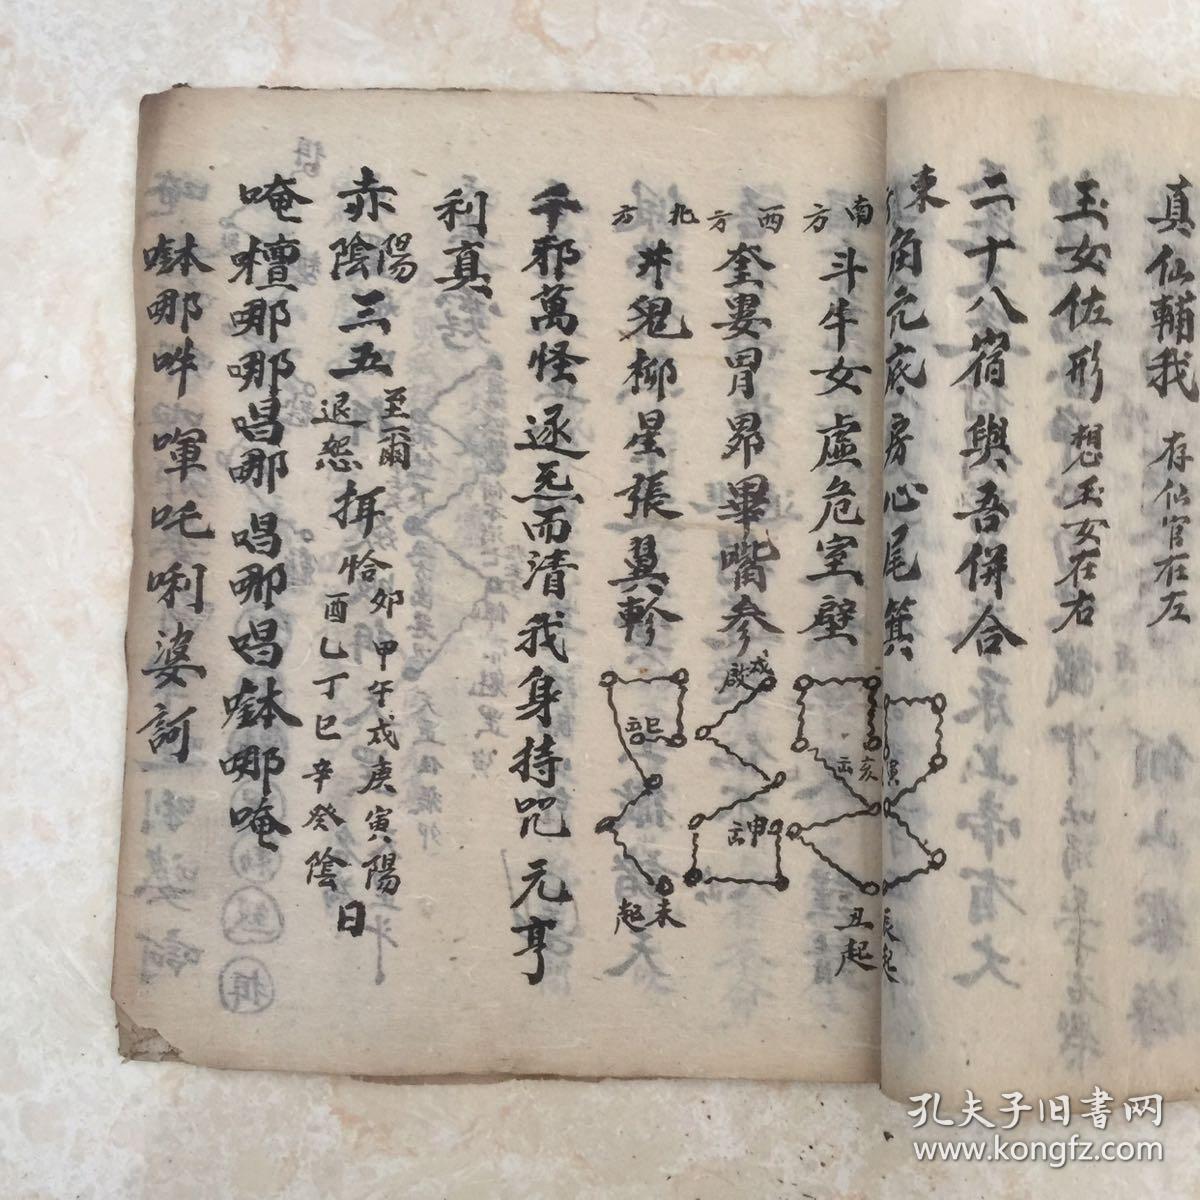 真仙輔我 存仙官在左
玉女佐形 想玉女在右
二十八宿與吾併合
東 角亢底房心尾箕 寅 辰起
南方 斗牛女虛危室壁 亥 丑起
西方 奎婁胃昴畢嘴參 戍 申
北方 井鬼柳星張翼軫 巳 未起
千邪萬怪逐炁而清我身持咒元亨
利真
赤陽陰三五至爾退怨揖恰卯甲午戍庚寅陽酉乙丁巳辛癸陰日
唵𠹌哪哪唱哪唱哪唱㖊哪唵
㖊哪吽㖔吒唎婆訶
孔夫子旧书网
www.kongfz.com